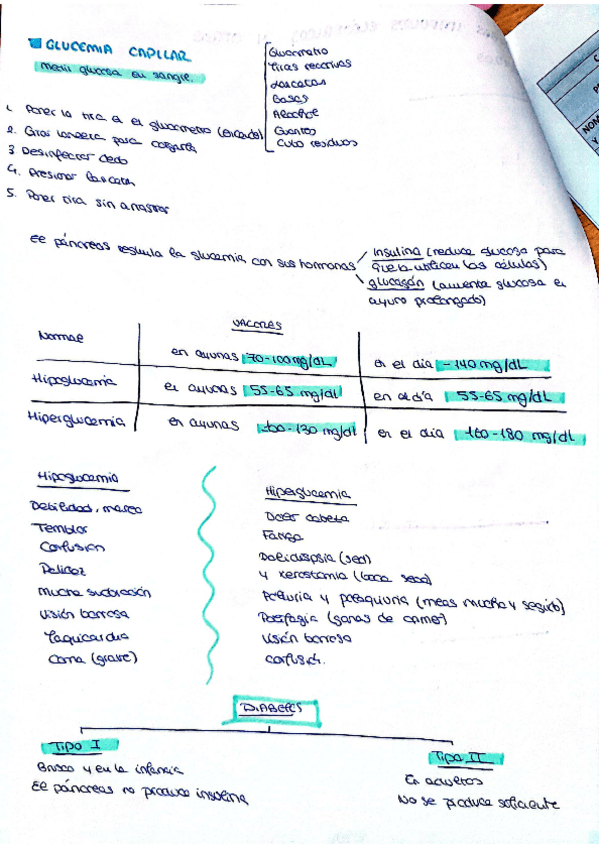 GLUCEMIA CAPILAR
Medir glucosa en sangre.
Glucómetro
Tiras reactivas
Lancetas
Gasas
Alcohol
Guantes
Cubo residuos
1. Poner la tira en el glucómetro (encender)
2. Girar lanceta para cargarla
3 Desinfectar dedo
4. Presionar lanceta
5. Poner tira sin arrastrar
El páncreas regula la glucemia con sus hormonas
insulina (reduce glucosa para
que la utilicen las células)
glucagón (aumenta glucosa en
ayuno prolongado)
VALORES
Normal en ayunas 70-100 mg/dL en el día -140 mg/dL
Hipoglucemia en ayunas 55-65 mg/dl en el día 55-65 mg/dL
Hiperglucemia en ayunas 100-130 mg/dl en el día 160-180 mg/dL
Hipoglucemia
Debilidad, mareo
Temblor
Confusión
Palidez
Mucha sudoración
Visión borrosa
Taquicardia
Coma (grave)
Hiperglucemia
Dolor cabeza
Fatiga
Polidispsia (sed)
y xerostomía (boca seca)
Poliuria y polaquiuria (meas mucho y seguido)
Polifagia (ganas de comer)
Visión borrosa
confusión.
DIABETES
Tipo I
Brusco y en la infancia
El páncreas no produce insulina
Tipo II
En adultos
No se produce suficiente
NOM
Y